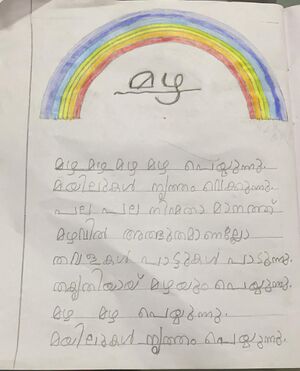 മഴ
മഴ മഴ മഴ മഴ പെയ്യുന്നു.
മയിലുകൾ നൃത്തം വെക്കുന്നു.
പല പല നിറമതാ മാനത്ത്
മഴവിൽ അത്ഭുതമാണല്ലോ
തവളകൾ പാട്ടുകൾ പാടുന്നു.
തകൃതിയായ് മഴയും പെയ്യുന്നു.
മഴ മഴ പെയ്യുന്നു.
മയിലുകൾ നൃത്തം പെയ്യുന്നു.